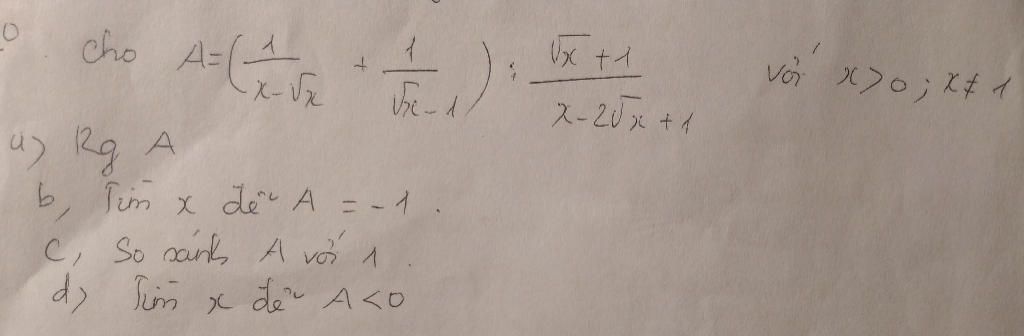 cho A = ( 1/(x-√x) + 1/(√x-1) ) : (√x+1)/(x-2√x+1) với x>0; x≠1
a) Rg A
b, Tìm x để A = -1.
c, So sánh A với 1.
d) Tìm x để A<0